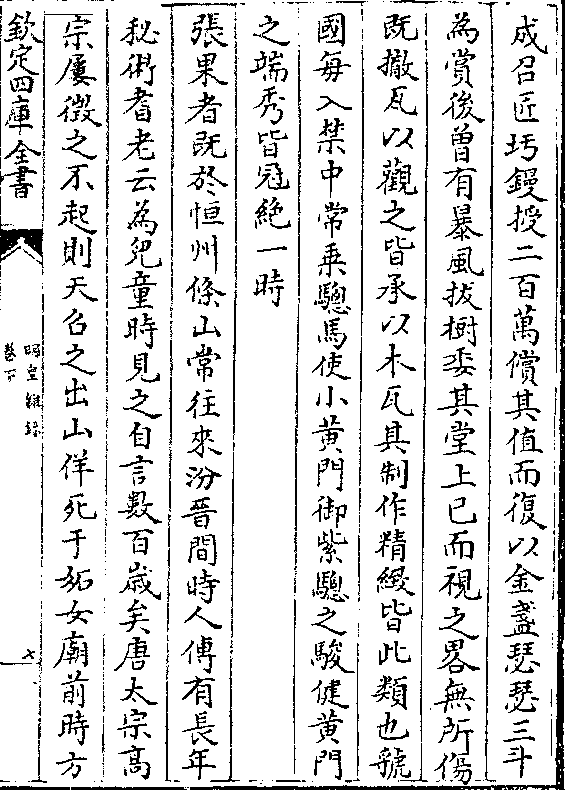 成召匠圬鏝授二百萬償其值而復以金盞瑟瑟三斗
為賞後曽有暴風拔樹委其堂上已而視之畧無所傷
既撤瓦以觀之皆承以木瓦其制作精緻皆此類也虢
國每入禁中常乗驄馬使小黄門御紫驄之駿健黄門
之端秀皆冠絶一時
張果者既於恒州條山常往來汾晉間時人傳有長年
秘術耆老云為兒童時見之自言數百歳矣唐太宗髙
宗屢徴之不起則天召之出山佯死于妬女廟前時方
欽定四庫全書
明皇雜録
卷下
七